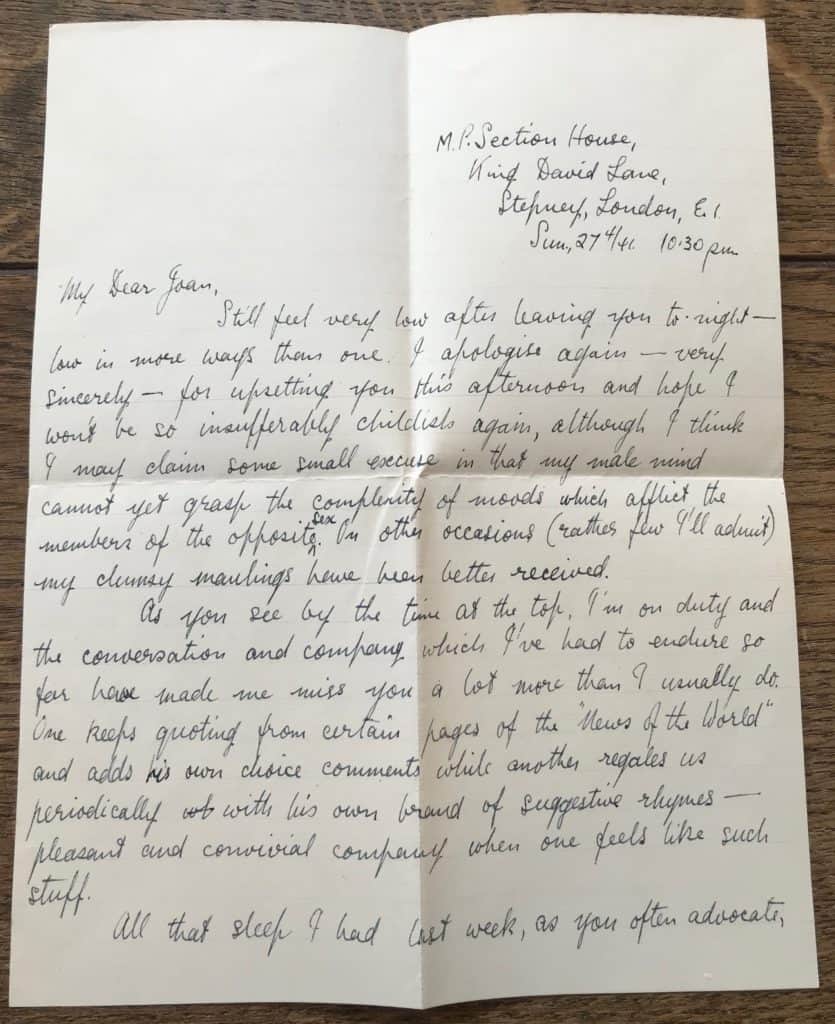 M.P. Section House,
King David Lane,
Stepney, London, E.1.
Sun., 27 4/41. 10.30 pm
My Dear Joan,
Still feel very low after leaving you to-night —
low in more ways than one. I apologise again — very
sincerely — for upsetting you this afternoon and hope I
won't be so insufferably childish again, although I think
I may claim some small excuse in that my male mind
cannot yet grasp the complexity of moods which afflict the
members of the opposite sex. On other occasions (rather few I'll admit)
my clumsy maulings have been better received.
As you see by the time at the top, I'm on duty and
the conversation and company which I've had to endure so
far have made me miss you a lot more than I usually do.
One keeps quoting from certain pages of the "News of the World"
and adds his own choice comments while another regales us
periodically with his own brand of suggestive rhymes —
pleasant and convivial company when one feels like such
stuff.
All that sleep I had last week, as you often advocate,